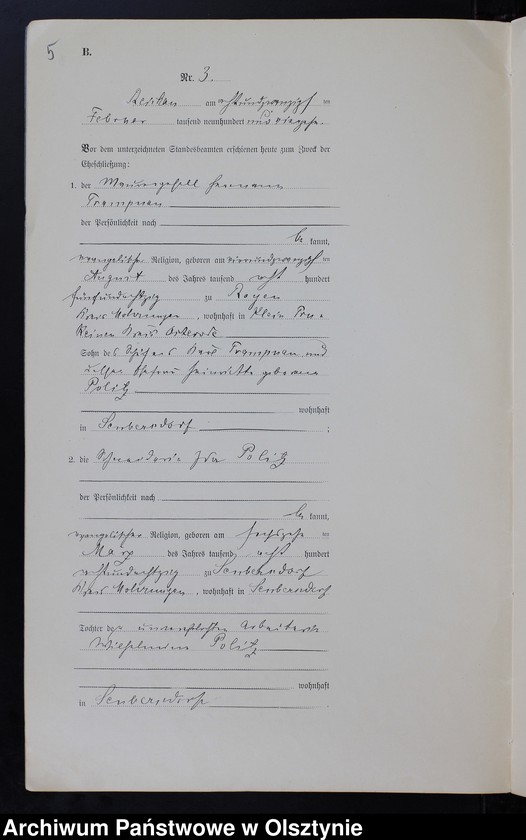 5
B.
Nr. 3.
am achtundzwanzigsten
Februar tausend neunhundert und vierzehn
Vor dem unterzeichneten Standesbeamten erschienen heute zum Zweck der
Eheschließung:
1. der Maurergesell Hermann
Trampnau
der Persönlichkeit nach
be kannt,
evangelischer Religion, geboren am vierundzwanzigsten
August des Jahres tausend acht hundert
fünfundachtzig zu Royen
Kreis Mohrungen, wohnhaft in Klein
Kreis Osterode
Sohn des Karl Trampnau und
Ehefrau Henriette geborene
Politz
wohnhaft
in Seubersdorf ;
2. die Schneiderin Ida Politz
der Persönlichkeit nach
be kannt,
evangelischer Religion, geboren am sechszehnten
März des Jahres tausend acht hundert
achtundachtzig zu Seubersdorf
Kreis Mohrungen, wohnhaft in Seubersdorf
Tochter der unverehelichten Arbeiterin
Wilhelmine Politz
wohnhaft
in Seubersdorf
Archiwum Państwowe w Olsztynie